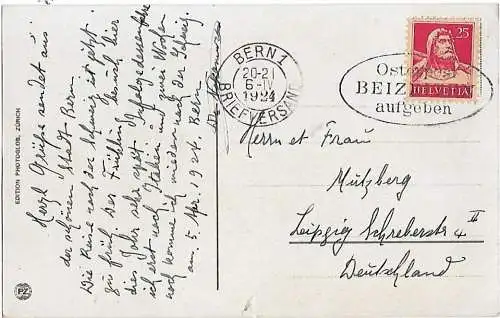 Herzl. Grüße sendet aus
der schönen Stadt Bern.
Die Reise nach der Schweiz ist jetzt
zu früh, der Frühling kommt hier
dies Jahr sehr spät.
ich erst nach Italien und zwei Wochen
noch komme ich wieder nach der Schweiz.
am 5. Apr. 1924. Bern
EDITION PHOTOGLOB, ZÜRICH
PZ
BERN 1
20-21
6-IV
1924
BRIEFVERSAND
Oster
BEIZ
aufgeben
25
HELVETIA
Herrn et Frau
Mützberg
Leipzig Schreberstr. 4 II
Deutschland